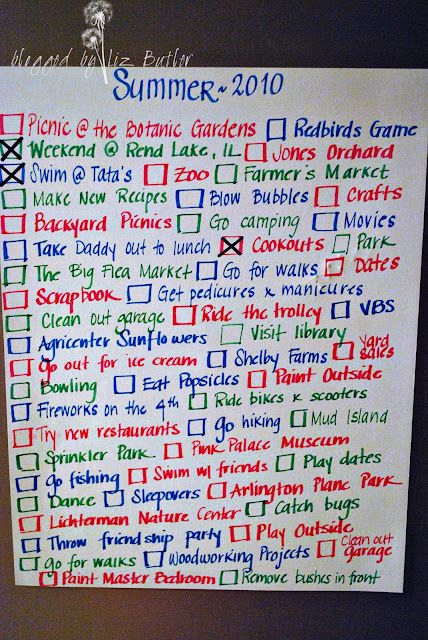 blogged by Liz Butler
Summer~2010
Picnic @ the Botanic Gardens Redbirds Game
Weekend @ Rend Lake, IL Jones Orchard
Swim @ Tata's Zoo Farmer's Market
Make New Recipes Blow Bubbles Crafts
Backyard Picnics Go camping Movies
Take Daddy out to lunch Cookouts Park
The Big Flea Market Go for walks Dates
Scrapbook Get pedicures & manicures
Clean out garage Ride the trolley VBS
Agricenter Sunflowers Visit library
Go out for ice cream Shelby Farms Yard Sales
Bowling Eat Popsicles Paint Outside
Fireworks on the 4th Ride bikes & scooters
Try new restaurants Go hiking Mud Island
Sprinkler Park Pink Palace Museum
Go fishing Swim w/ friends Play dates
Dance Sleepovers Arlington Plane Park
Lichterman Nature Center Catch bugs
Throw friendship party Play Outside
Go for walks Woodworking Projects Clean out garage
Paint Master Bedroom Remove bushes in front